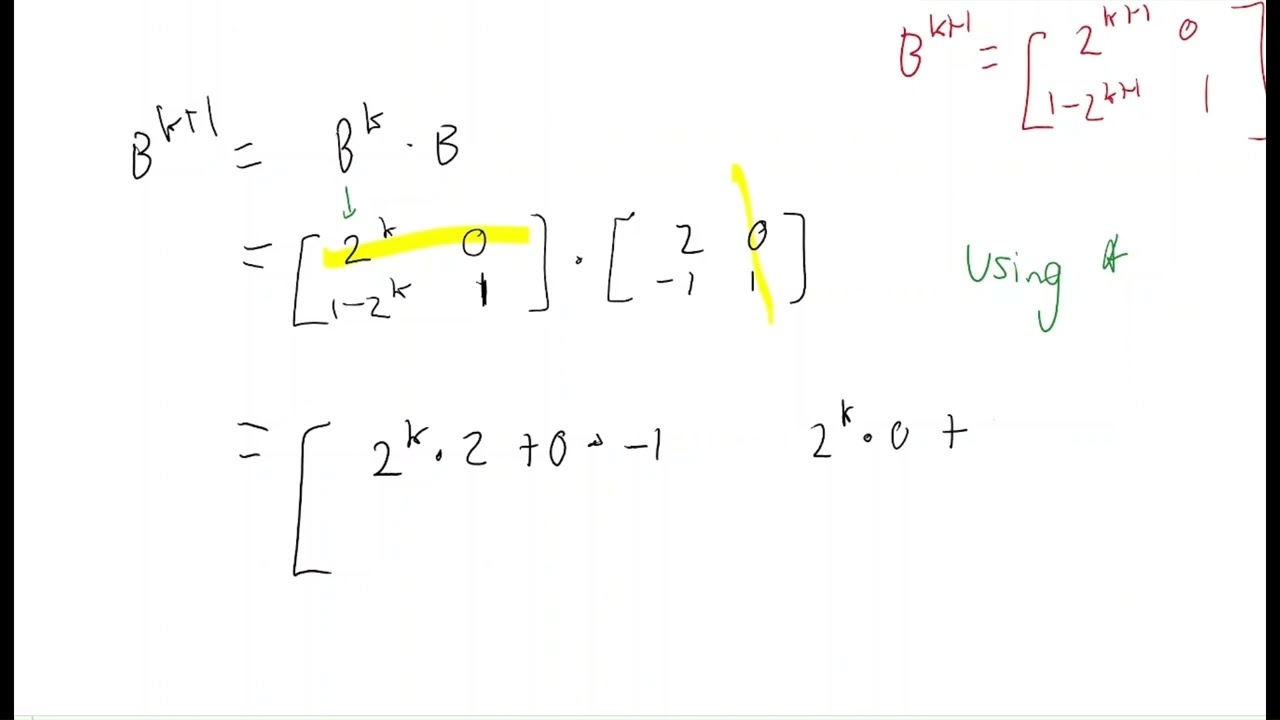 B^{k+1} = [ 2^{k+1} 0
1-2^{k+1} 1 ]
B^{k+1} = B^k · B
↓
= [ 2^k 0 ] · [ 2 0 ]
1-2^k 1 -1 1
Using *
= [ 2^k · 2 + 0 · -1 2^k · 0 +